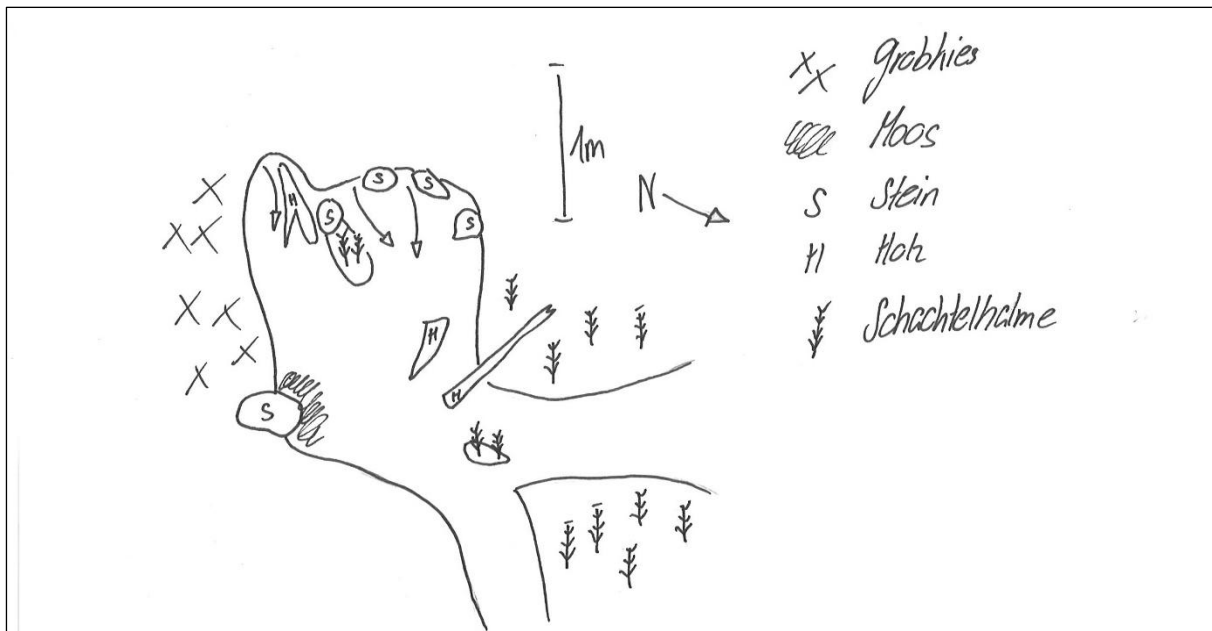 1m
N
xx Grobkies
Moos
S Stein
H Holz
Schachtelhalme
H
S
S
S
S
H
H
S